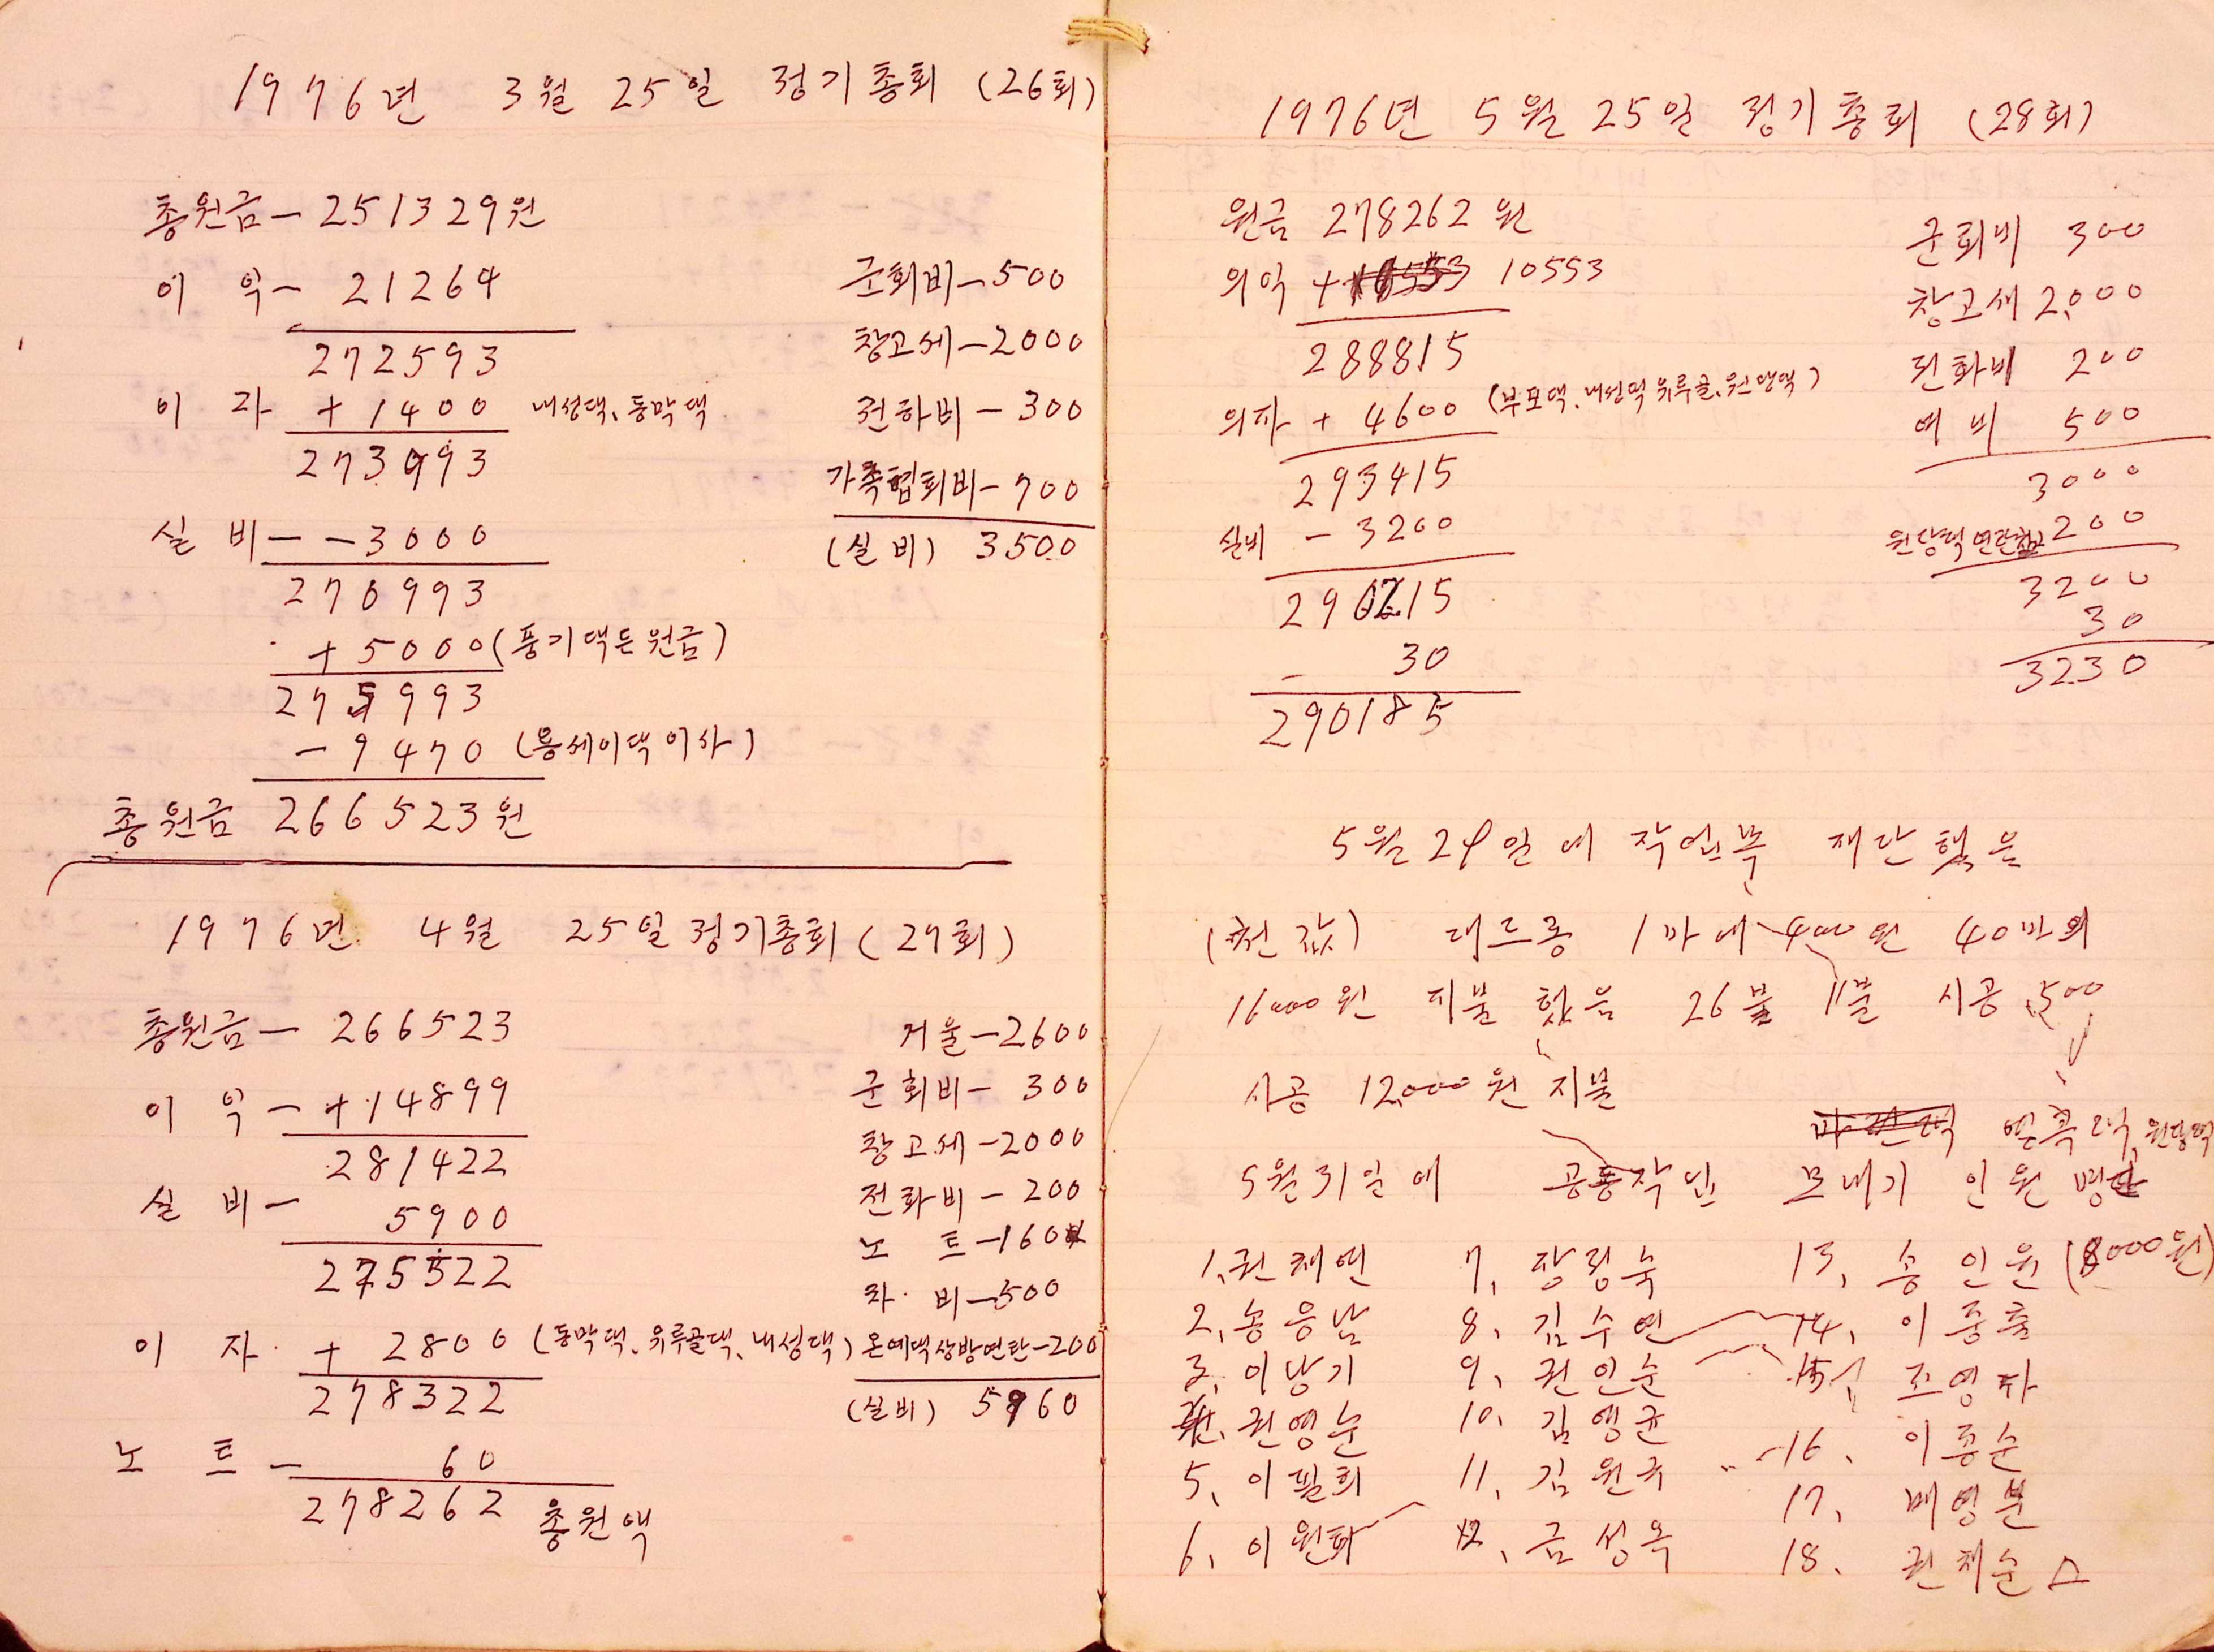 1976년 3월 25일 정기총회 (26회)
총원금 - 251329원
이 익 - 21264
272593
이 자 + 1400 내성댁、동막댁
273993
실 비 - - 3000
270993
+ 5000 (풍기댁든원금)
275993
- 9470 (용세이댁이사)
총원금 266523원
군회비 - 500
창고세 - 2000
전하비 - 300
가족협회비 - 700
(실비) 3500
1976년 4월 25일 정기총회 (27회)
총원금 - 266523
이 익 - + 14899
281422
실 비 - 5900
275522
이 자 + 2800 (동막댁、유루골댁、내성댁)
278322
노 트 - 60
278262 총원액
거울 - 2600
군회비 - 300
창고세 - 2000
전화비 - 200
노 트 - 160
차 비 - 500
온예댁상방연탄 - 200
(실비) 5960
1976년 5월 25일 정기총회 (28회)
원금 278262원
의익 + 10553
288815
의자 + 4600 (부포댁、내성댁 유루골、원당댁)
293415
실비 - 3200
290215
- 30
290185
군회비 300
창고세 2,000
전화비 200
여비 500
3000
원당댁 연탄 200
3200
30
3230
5월 29일에 작업복 재단했음
(천값) 대드롱 1마에 400원 40마의
16000원 지불했음 26불 11불 시공 500
시공 12,000원 지불
댁、원당댁
5월 31일에 공동작업 모내기 인원 명단
1、권채연 7、장정숙 13、송인원 (8000원)
2、송응남 8、김수연 14、이중출
3、이낭기 9、권인순 15、조영자
권영순 10、김영균 16、이종순
5、이필희 11、김원규 17、배영분
6、이원화 12、금성옥 18、권채순